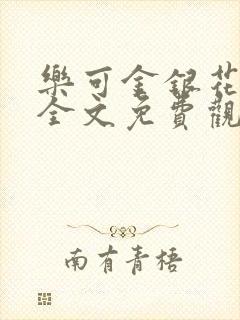 樂可金銀花
全文免費觀
南有青梧